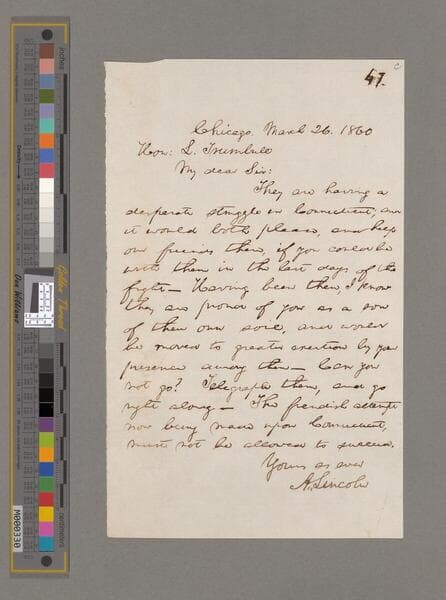 47.
Chicago, March 26. 1860
Hon: L. Trumbull
My dear Sir:
They are having a
desperate struggle in Connecticut, and
it would both please, and help
our friends there, if you could be
with them in the last days of the
fight— Having been there, I know
they are proud of you as a son
of their own soil, and would
be moved to greater exertion by your
presence among them— Can you
not go? Telegraph them, and go
right along— The fiendish attempt
now being made upon Connecticut,
must not be allowed to succeed.
Yours as ever
A. Lincoln
inches
centimeters
Golden Thread
Don Williams
M000330